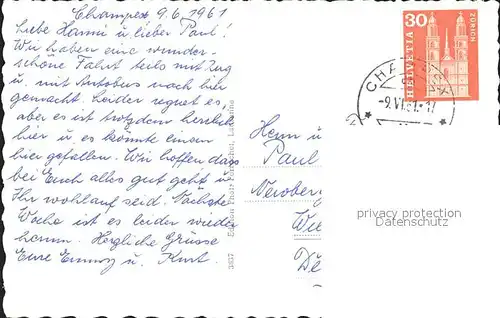 Champex 9.6.1961
Liebe Hanni u. lieber Paul!
Wir haben eine wunder-
schöne Fahrt teils mit Zug
u. mit Autobus nach hier
gemacht. Leider regnet es,
aber es ist trotzdem herrlich
hier u. es könnte einem
hier gefallen. Wir hoffen dass
bei Euch alles gut geht u.
Ihr wohlauf seid. Nächste
Woche ist es leider wieder
herum. Herzliche Grüsse
Eure u. Kurt.
3857 Edition Phot. Lausanne
Herrn u
Paul
Wie
HELVETIA 30 ZÜRICH
CHAMPEX
-9.VI.61-17
privacy protection
Datenschutz